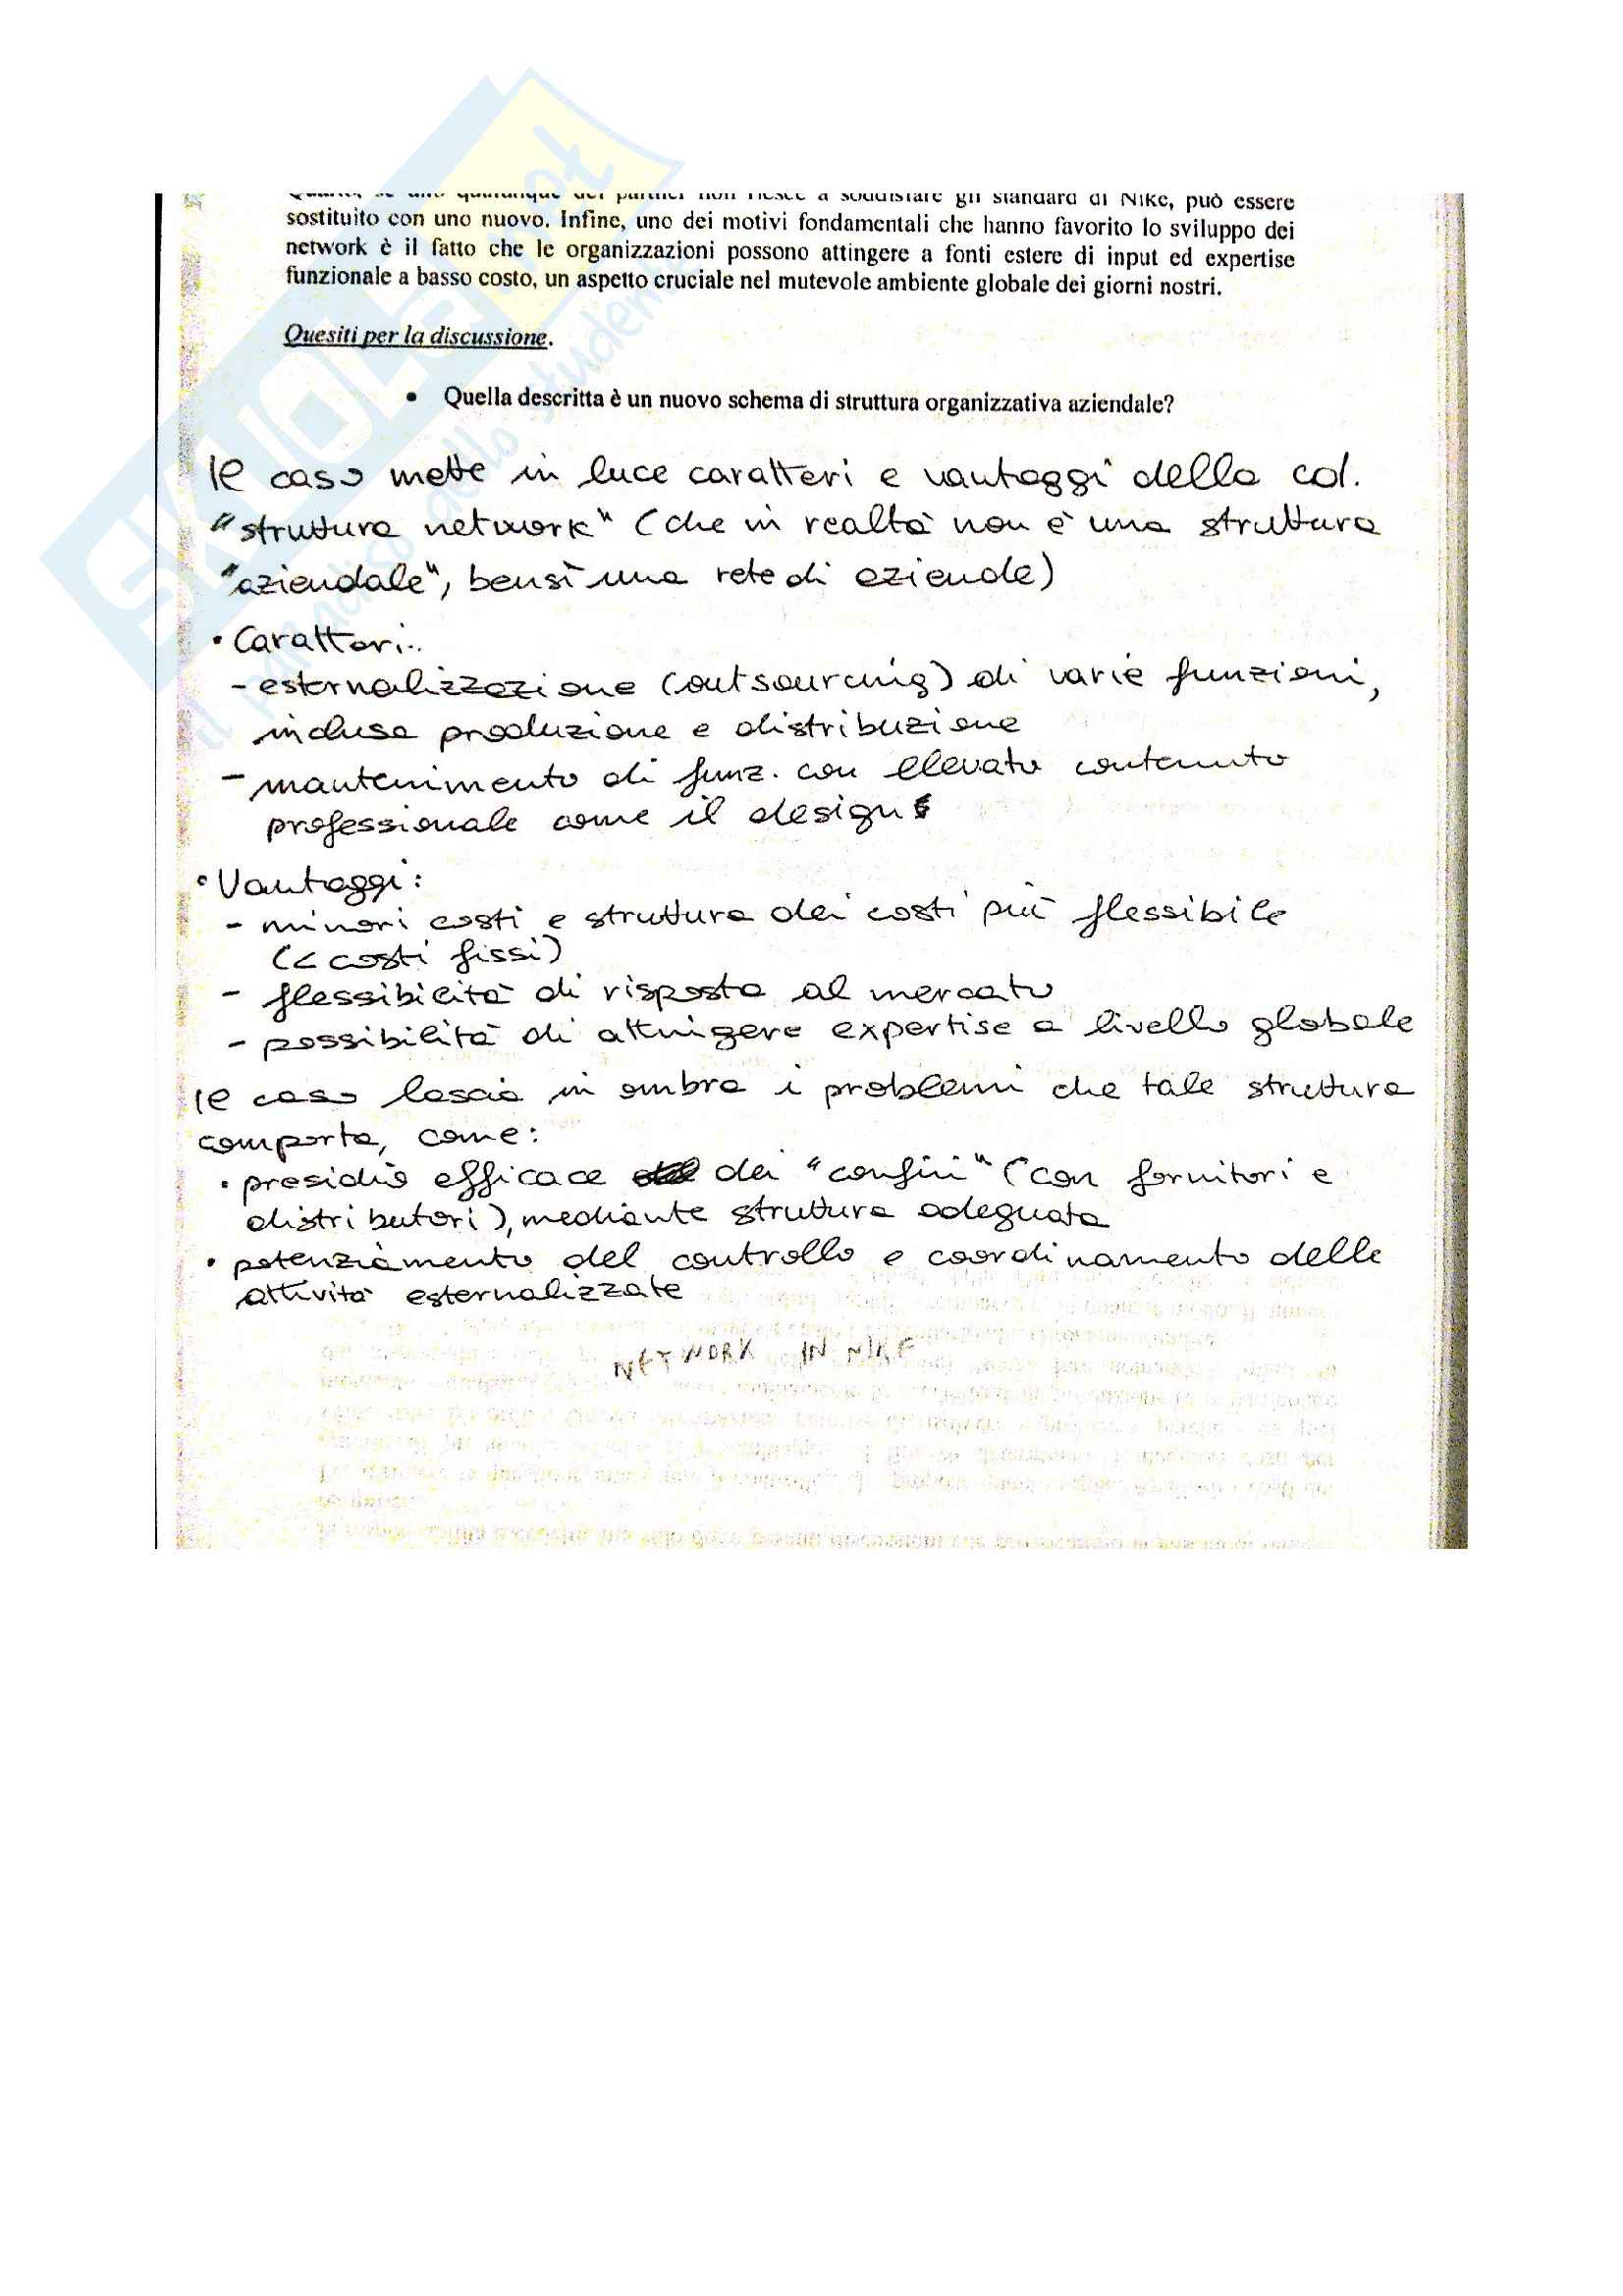 Quarto, se uno qualunque dei partner non riesce a soddisfare gli standard di Nike, può essere
sostituito con uno nuovo. Infine, uno dei motivi fondamentali che hanno favorito lo sviluppo dei
network è il fatto che le organizzazioni possono attingere a fonti estere di input ed expertise
funzionale a basso costo, un aspetto cruciale nel mutevole ambiente globale dei giorni nostri.
Quesiti per la discussione.
• Quella descritta è un nuovo schema di struttura organizzativa aziendale?
Il caso mette in luce caratteri e vantaggi della cd.
"struttura network" (che in realtà non è una struttura
"aziendale", bensì una rete di aziende)
• Caratteri:
- esternalizzazione (outsourcing) di varie funzioni,
inclusa produzione e distribuzione
- mantenimento di funz. con elevato contenuto
professionale come il design
• Vantaggi:
- minori costi e struttura dei costi più flessibile
(< costi fissi)
- flessibilità di risposta al mercato
- possibilità di attingere expertise a livello globale
Il caso lascia in ombra i problemi che tale struttura
comporta, come:
• presidio efficace dei "confini" (con fornitori e
distributori), mediante struttura adeguata
• potenziamento del controllo e coordinamento delle
attività esternalizzate
NETWORK IN NIKE
SKUOLA.net
il paradiso dello studente